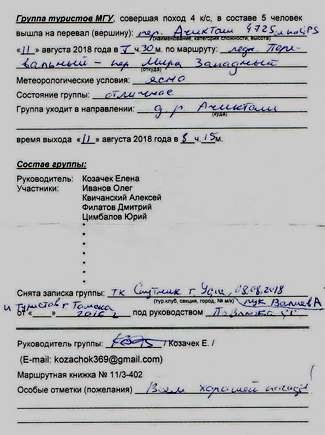 Группа туристов МГУ, совершая поход 4 к/с, в составе 5 человек
вышла на перевал (вершину): пер. Ачикташ 4725 м по GPS
(наименование, категория сложности, высота)
«11» августа 2018 года в 7 ч. 30 м. по маршруту: ледн.
– пер. Мира Западный
(откуда)
Метеорологические условия: ясно
Состояние группы: отличное
Группа уходит в направлении: д.р. Ачикташ
(куда)
время выхода «11» августа 2018 года в 8 ч. 15 м.
Состав группы:
Руководитель: Козачек Елена
Участники: Иванов Олег
Квичанский Алексей
Филатов Дмитрий
Цимбалов Юрий
Снята записка группы: тк Спутник г. Уфа, 08.08.2018
(тур.клуб, секция, город, № м/к) рук Валиев А
и туристов г. Томска
от «___» 2016 г. под руководством
Руководитель группы: / Козачек Е. /
(E-mail: kozachok369@gmail.com)
Маршрутная книжка № 11/3-402
Особые отметки (пожелания) Всем хорошей погоды!